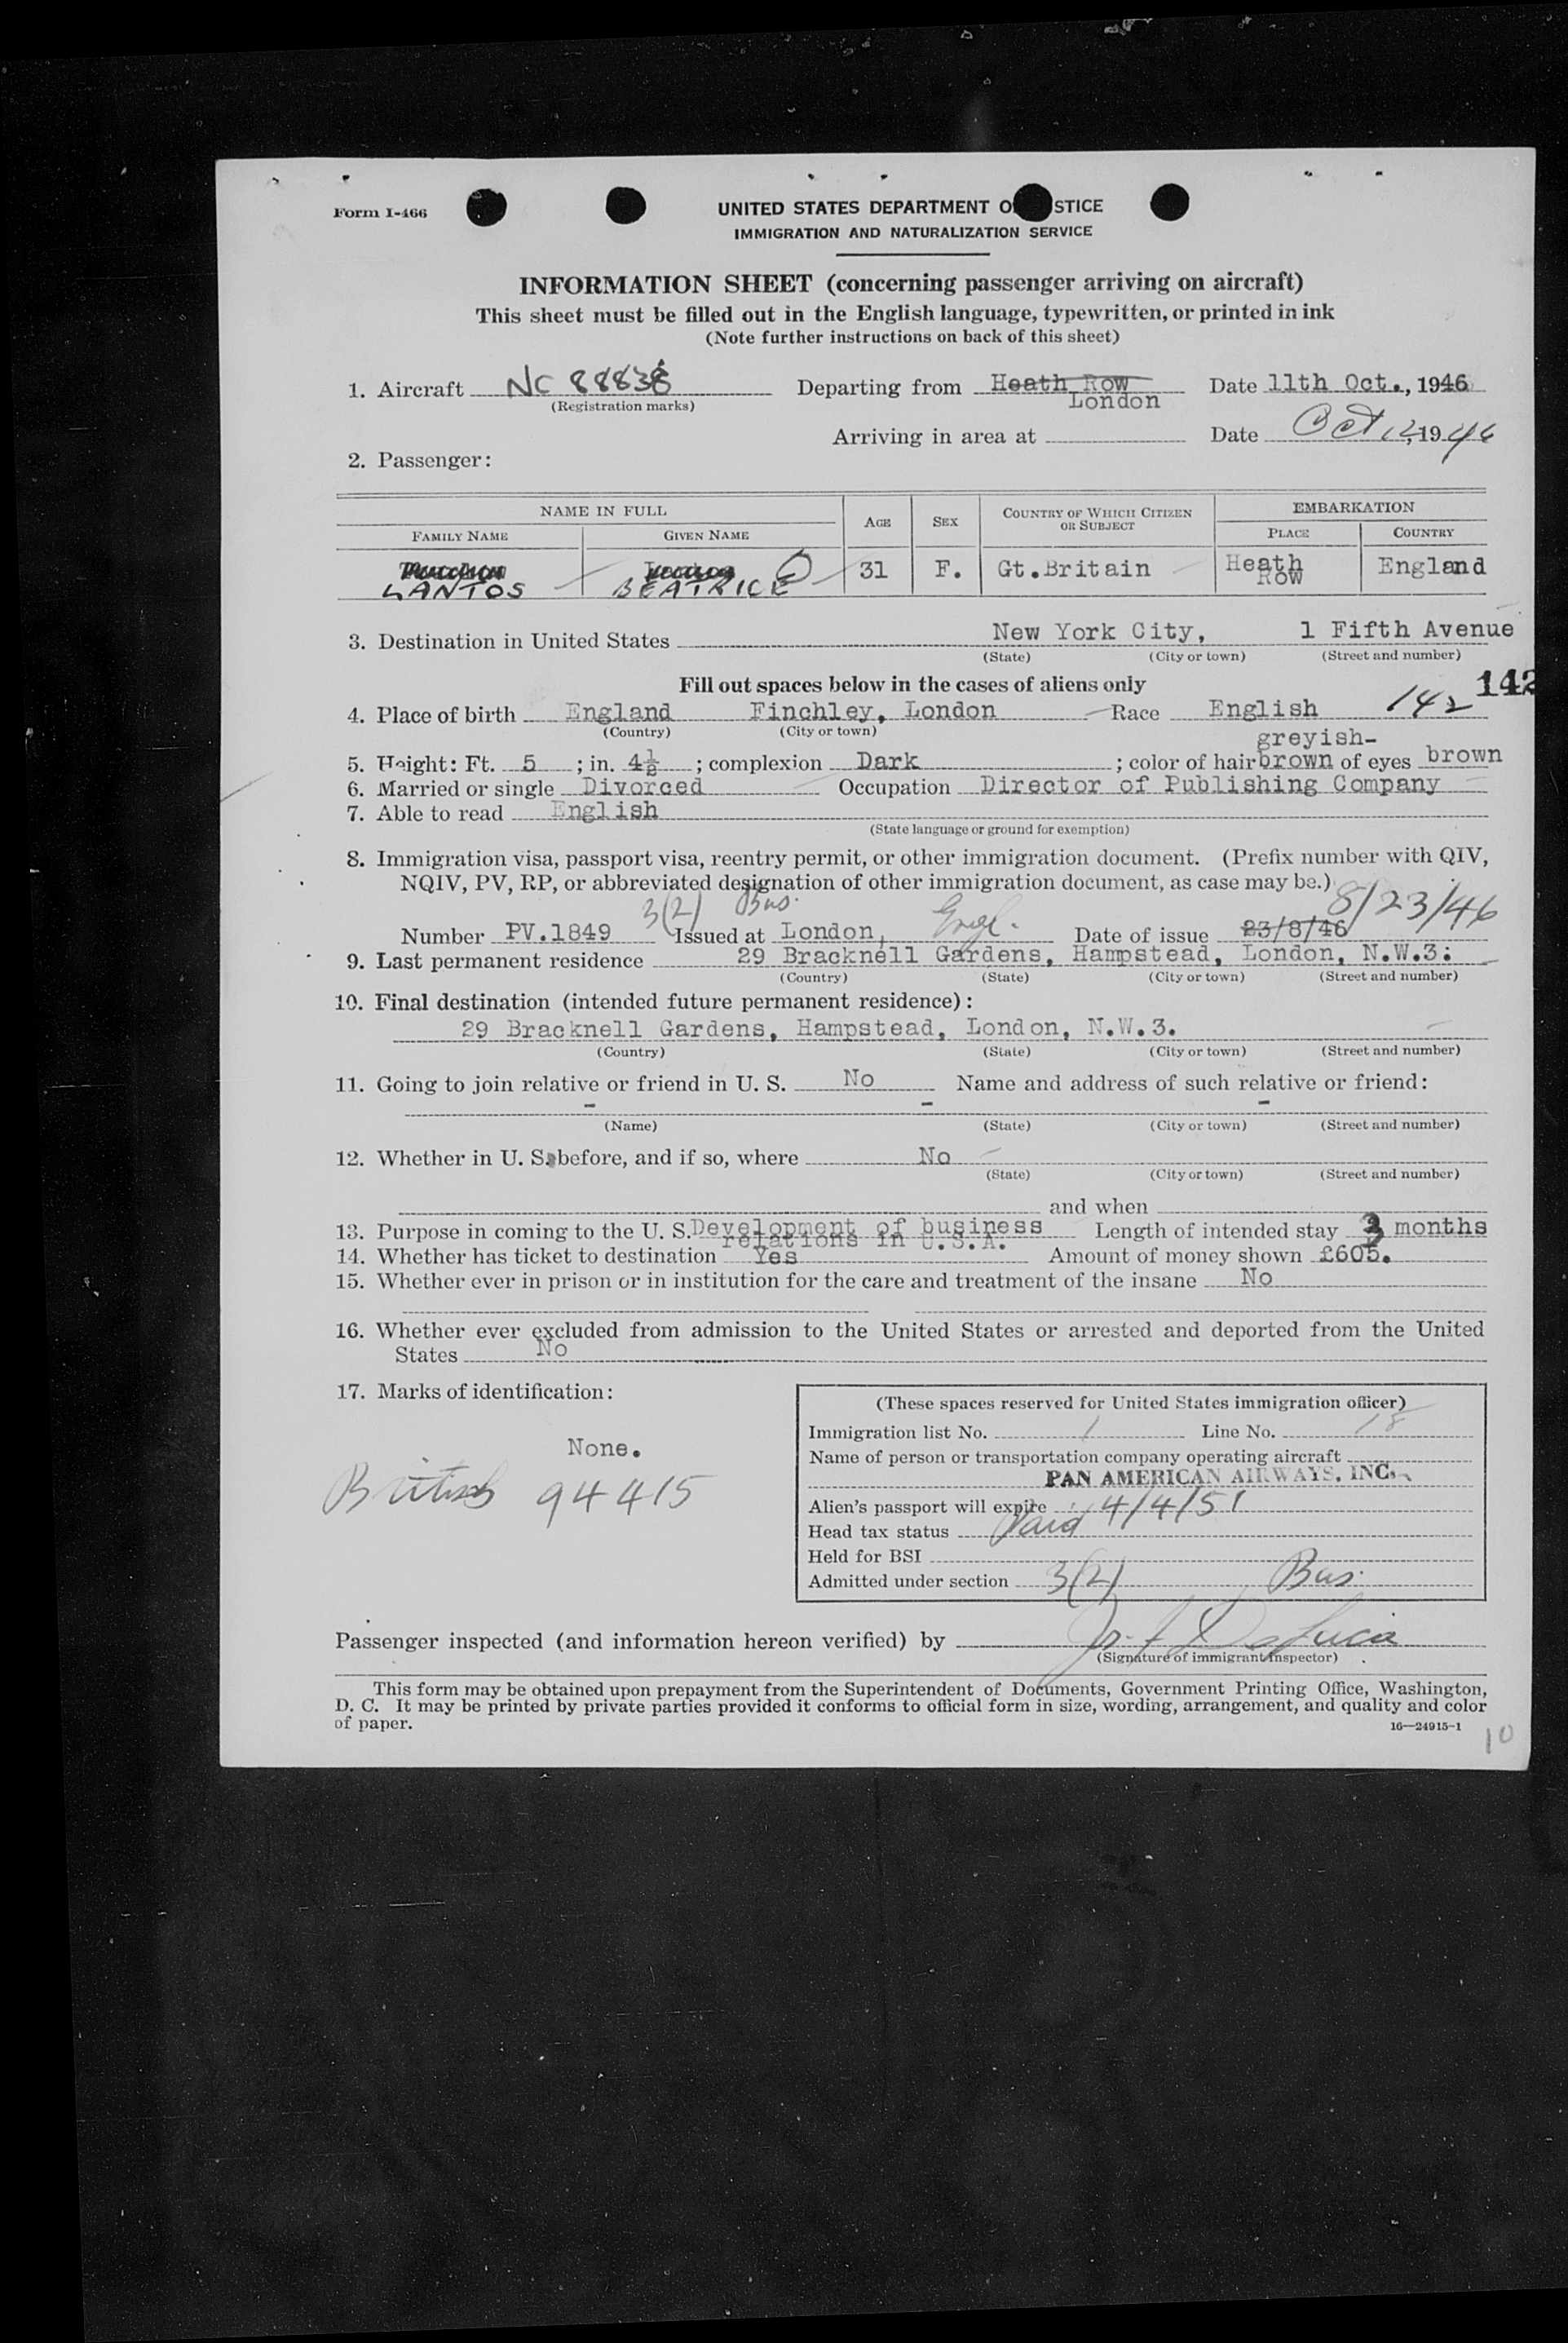 Form I-466
UNITED STATES DEPARTMENT O STICE
IMMIGRATION AND NATURALIZATION SERVICE
INFORMATION SHEET (concerning passenger arriving on aircraft)
This sheet must be filled out in the English language, typewritten, or printed in ink
(Note further instructions on back of this sheet)
1. Aircraft NC 88838 Departing from Heath Row Date 11th Oct., 1946
(Registration marks) London
Arriving in area at Date Oct 12, 1946
2. Passenger:
NAME IN FULL AGE SEX COUNTRY OF WHICH CITIZEN OR SUBJECT EMBARKATION
FAMILY NAME GIVEN NAME PLACE COUNTRY
LANTOS BEATRICE 31 F. Gt.Britain Heath Row England
3. Destination in United States New York City, 1 Fifth Avenue
(State) (City or town) (Street and number)
Fill out spaces below in the cases of aliens only 142
4. Place of birth England Finchley, London Race English 142
(Country) (City or town)
greyish-
5. Height: Ft. 5 ; in. 4½ ; complexion Dark ; color of hair brown of eyes brown
6. Married or single Divorced Occupation Director of Publishing Company
7. Able to read English
(State language or ground for exemption)
8. Immigration visa, passport visa, reentry permit, or other immigration document. (Prefix number with QIV,
NQIV, PV, RP, or abbreviated designation of other immigration document, as case may be.)
3(2) Bus. 8/23/46
Number PV.1849 Issued at London, Engl. Date of issue 23/8/46
9. Last permanent residence 29 Bracknell Gardens, Hampstead, London, N.W.3:
(Country) (State) (City or town) (Street and number)
10. Final destination (intended future permanent residence):
29 Bracknell Gardens, Hampstead, London, N.W.3.
(Country) (State) (City or town) (Street and number)
11. Going to join relative or friend in U. S. No Name and address of such relative or friend:
- - -
(Name) (State) (City or town) (Street and number)
12. Whether in U. S. before, and if so, where No
(State) (City or town) (Street and number)
and when
13. Purpose in coming to the U. S. Development of business Length of intended stay 3 months
relations in U.S.A.
14. Whether has ticket to destination Yes Amount of money shown £605.
15. Whether ever in prison or in institution for the care and treatment of the insane No
16. Whether ever excluded from admission to the United States or arrested and deported from the United
States No
17. Marks of identification:
None.
British 94415
(These spaces reserved for United States immigration officer)
Immigration list No. 1 Line No. 18
Name of person or transportation company operating aircraft
PAN AMERICAN AIRWAYS, INC.
Alien's passport will expire 4/4/51
Head tax status Paid
Held for BSI
Admitted under section 3(2) Bus.
Passenger inspected (and information hereon verified) by
(Signature of immigrant inspector)
This form may be obtained upon prepayment from the Superintendent of Documents, Government Printing Office, Washington,
D. C. It may be printed by private parties provided it conforms to official form in size, wording, arrangement, and quality and color
of paper.
16—24915-1
10